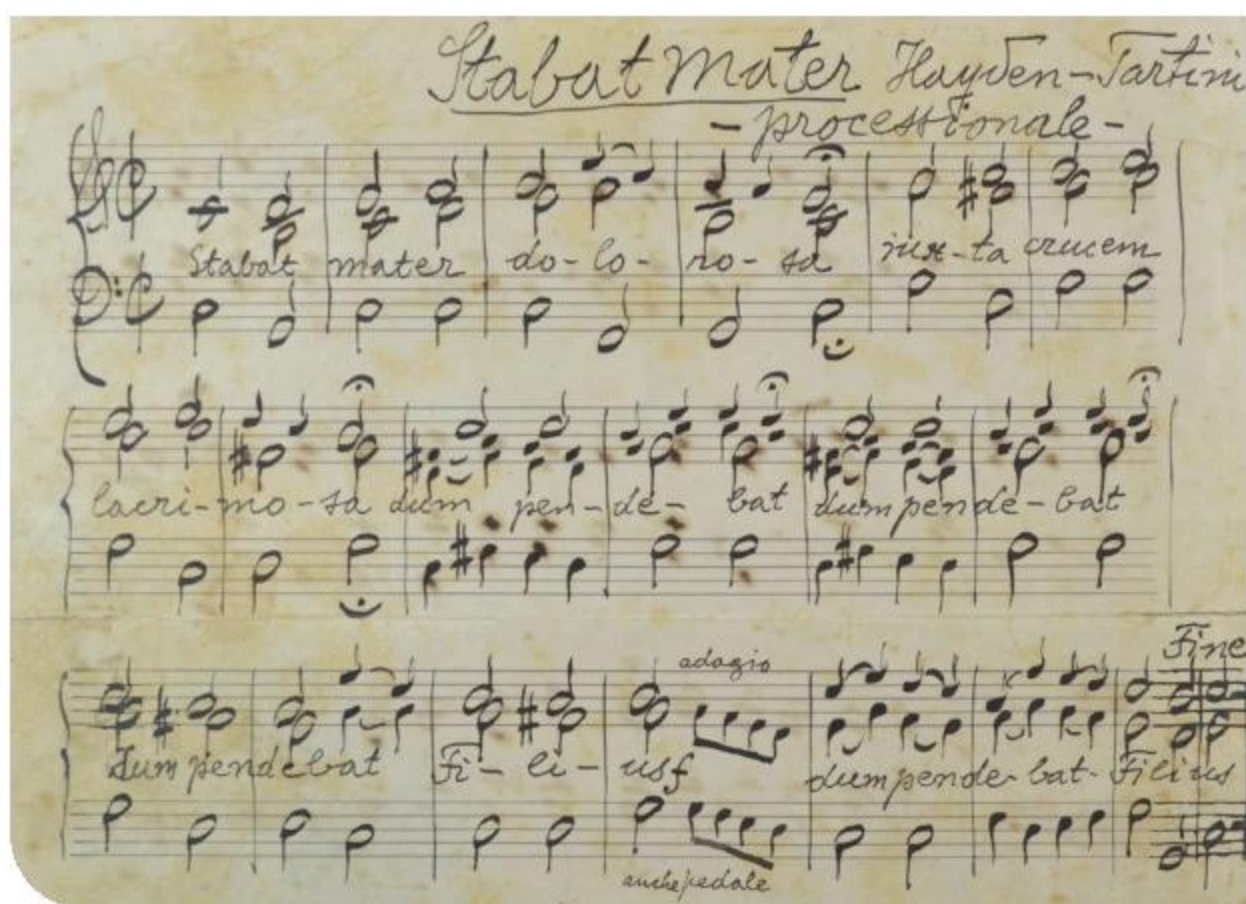 Stabat Mater Hayden-Tartini
- processionale -
Stabat mater do-lo-ro-sa iux-ta crucem
lacri-mo-sa dum pen-de-bat dum pende-bat
Fine
adagio
dum pendebat Fi-li-us f dum pende-bat-Filius
anche pedale